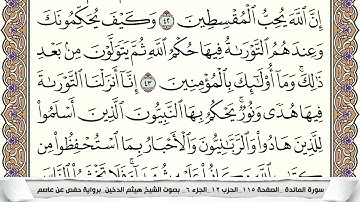 إِنَّ ٱللَّهَ يُحِبُّ ٱلْمُقْسِطِينَ ٤٢ وَكَيْفَ يُحَكِّمُونَكَ
وَعِندَهُمُ ٱلتَّوْرَىٰةُ فِيهَا حُكْمُ ٱللَّهِ ثُمَّ يَتَوَلَّوْنَ مِنۢ بَعْدِ
ذَٰلِكَ ۚ وَمَآ أُو۟لَـٰٓئِكَ بِٱلْمُؤْمِنِينَ ٤٣ إِنَّآ أَنزَلْنَا ٱلتَّوْرَىٰةَ
فِيهَا هُدًى وَنُورٌ ۚ يَحْكُمُ بِهَا ٱلنَّبِيُّونَ ٱلَّذِينَ أَسْلَمُوا۟
لِلَّذِينَ هَادُوا۟ وَٱلرَّبَّـٰنِيُّونَ وَٱلْأَحْبَارُ بِمَا ٱسْتُحْفِظُوا۟ مِن
سورة المائدة _ الصفحة ١١٥ _ الحزب ١٢ _ الجزء ٦ _ بصوت الشيخ هيثم الدخين _ برواية حفص عن عاصم